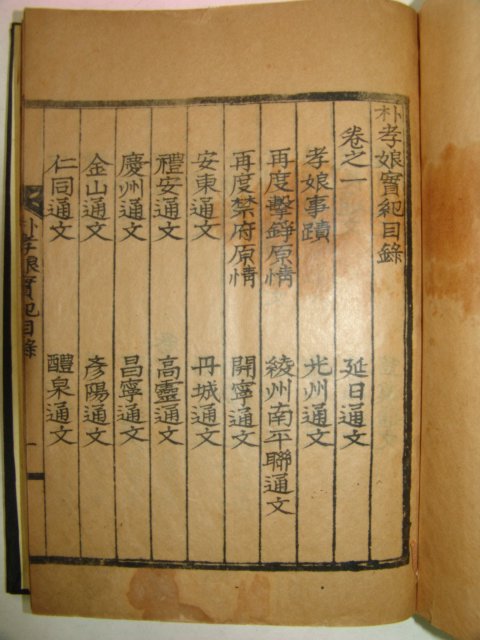 朴孝娘實紀目錄
卷之一 延日通文
孝娘事蹟 光州通文
再度擊錚原情 綾州南平聯通文
再度禁府原情 開寧通文
安東通文 丹城通文
禮安通文 高靈通文
慶州通文 昌寧通文
金山通文 彥陽通文
仁同通文 醴泉通文
朴孝娘實紀目錄 一